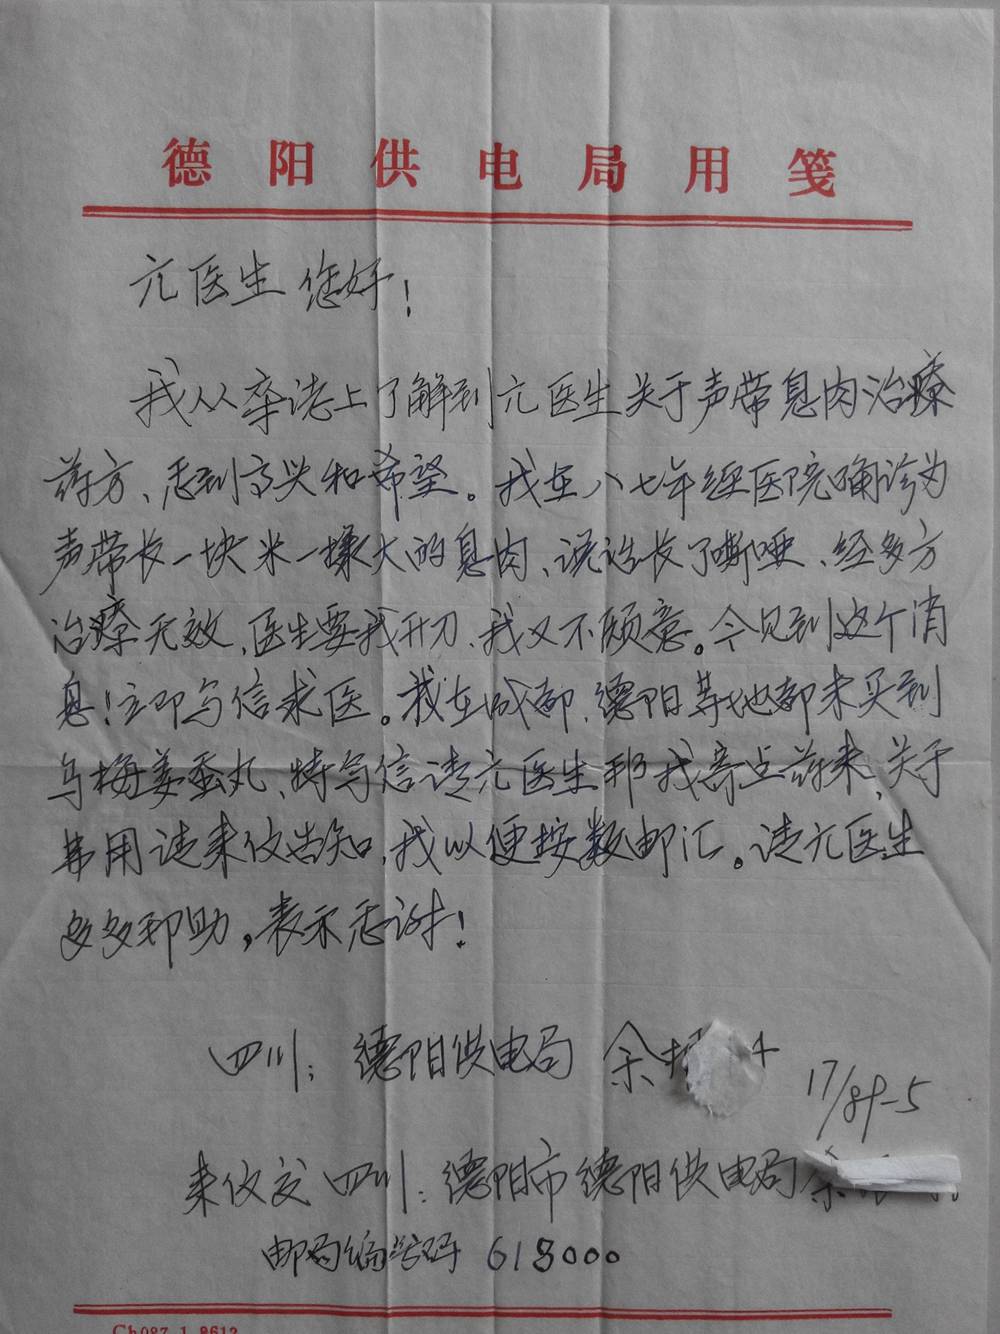 德阳供电局用笺
亢医生您好！
我从杂志上了解到亢医生关于声带息肉治療
药方、感到高兴和希望。我在八七年经医院确诊为
声带长一块米一样大的息肉、说话长了嘶哑、经多方
治療无效、医生要我开刀、我又不愿意。今见到这个消
息！立即写信求医。我在成都、德阳等地都未买到
乌梅姜蚕丸、特写信请亢医生邦我寄点药来、关于
费用请来仪告知，我以便按数邮汇。请亢医生
多多邦助，表示感谢！
四川：德阳供电局 余
17/89-5
来仪交四川：德阳市德阳供电局余
邮局编码 618000
Ch087·1·8612